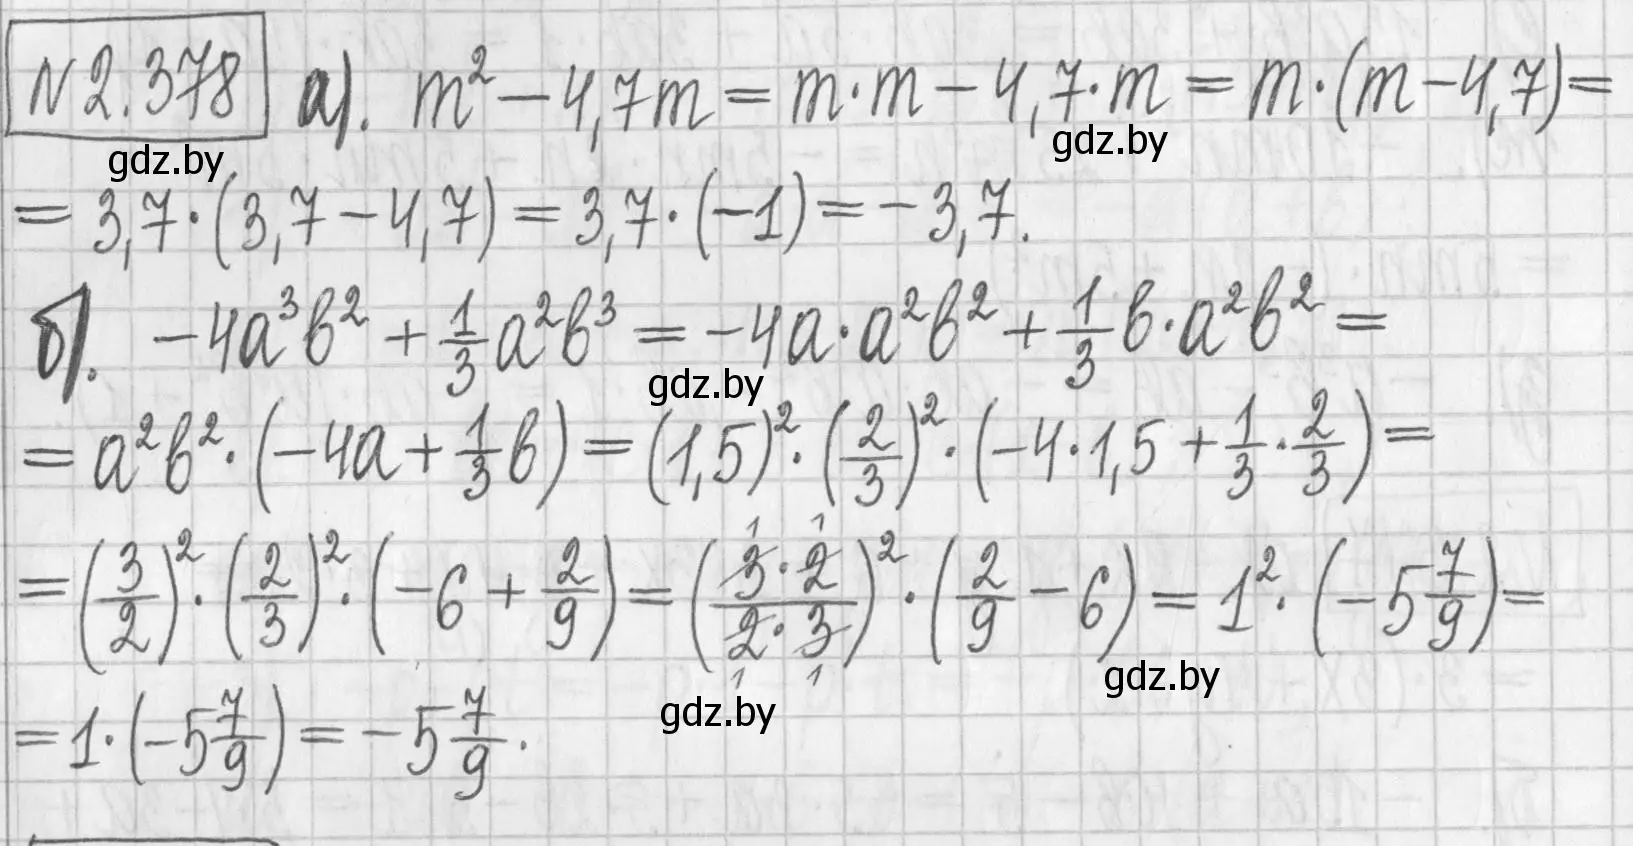 №2.378 а). m² − 4,7m = m·m − 4,7·m = m·(m − 4,7) =
gdz.by gdz.by
= 3,7·(3,7 − 4,7) = 3,7·(−1) = −3,7.
б). −4a³b² + 1/3 a²b³ = −4a·a²b² + 1/3 b·a²b² =
gdz.by
= a²b²·(−4a + 1/3 b) = (1,5)²·(2/3)²·(−4·1,5 + 1/3·2/3) =
= (3/2)²·(2/3)²·(−6 + 2/9) = (3·2/2·3)²·(2/9 − 6) = 1²·(−5 7/9) =
gdz.by gdz.by
= 1·(−5 7/9) = −5 7/9.